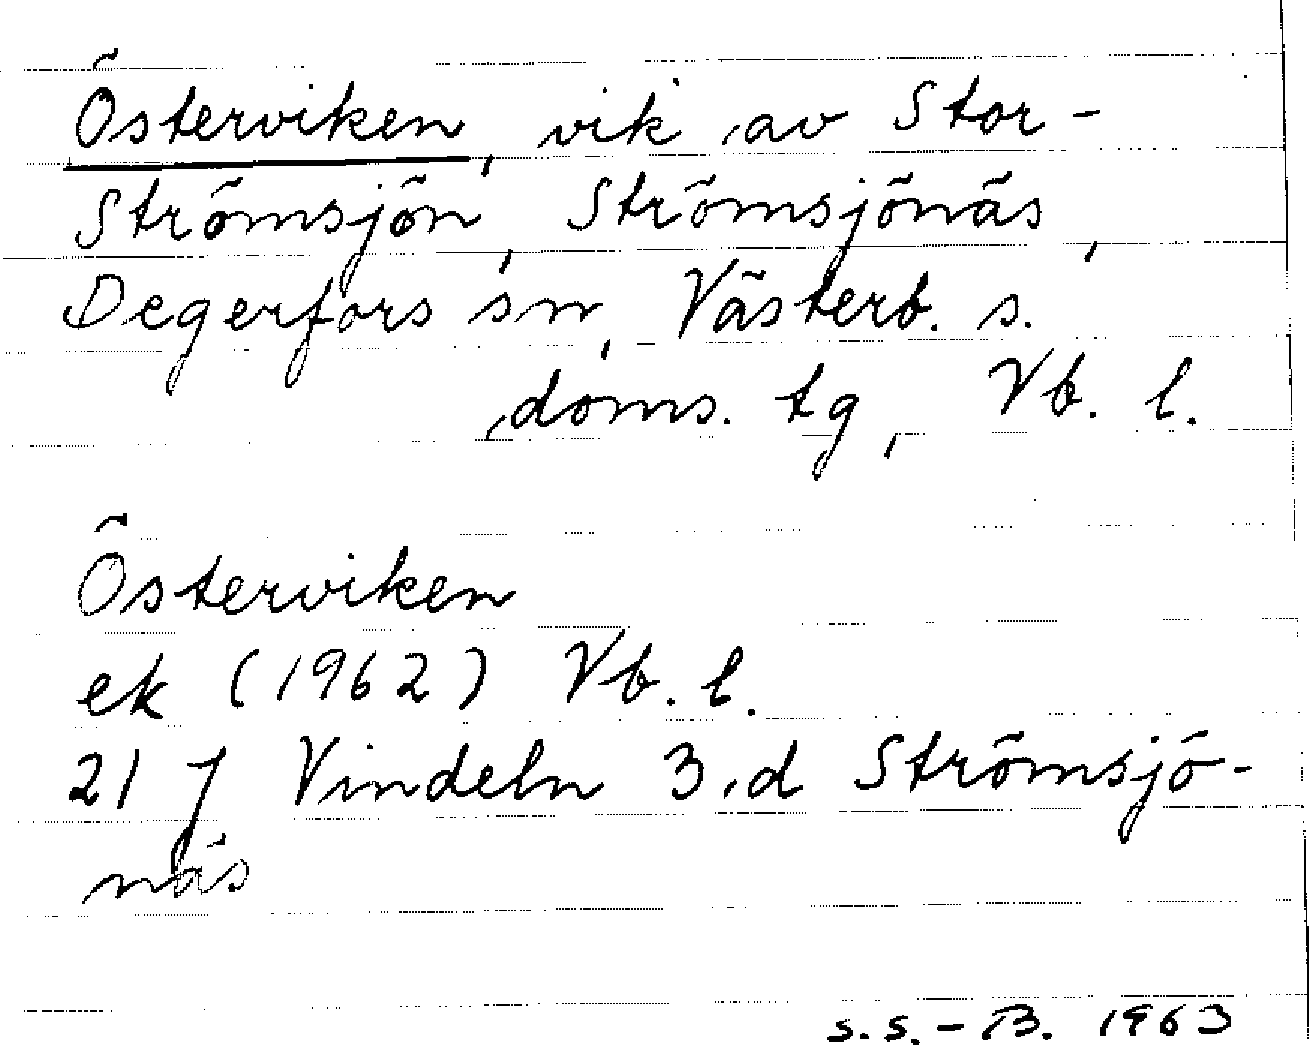 Österviken, vik av Stor-
Strömsjön, Strömsjönäs,
Degerfors sn, Västerb. s.
doms. tg, Vb. l.
Österviken
ek (1962) Vb. l.
21 J Vindeln 3.d Strömsjö-
näs
s.s.-B. 1963